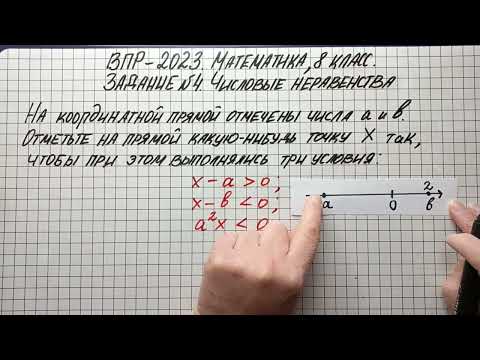 ВПР-2023. МАТЕМАТИКА, 8 КЛАСС.
ЗАДАНИЕ №4. ЧИСЛОВЫЕ НЕРАВЕНСТВА
НА КООРДИНАТНОЙ ПРЯМОЙ ОТМЕЧЕНЫ ЧИСЛА а и в.
ОТМЕТЬТЕ НА ПРЯМОЙ КАКУЮ-НИБУДЬ ТОЧКУ X ТАК,
ЧТОБЫ ПРИ ЭТОМ ВЫПОЛНЯЛИСЬ ТРИ УСЛОВИЯ:
x-a>0;
x-в<0;
a²x<0
2
a 0 в